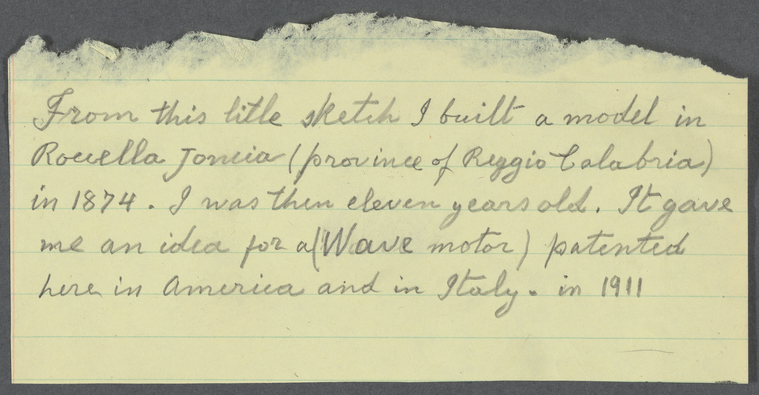 From this litle sketch I built a model in
Rocella Joncia (province of Reggio Calabria)
in 1874. I was then eleven years old. It gave
me an idea for a (Wave motor) patented
here in America and in Italy. in 1911